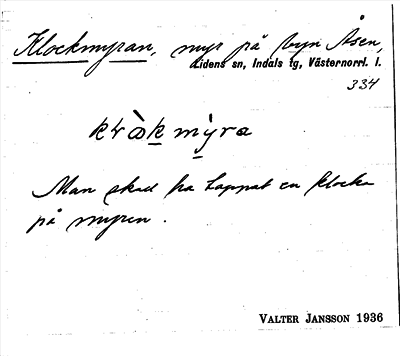 Klockmyran, myr på byn Åsen,
Lidens sn, Indals tg, Västernorrl. l.
334
Man skad ha tappat en klocka
på myren.
VALTER JANSSON 1936